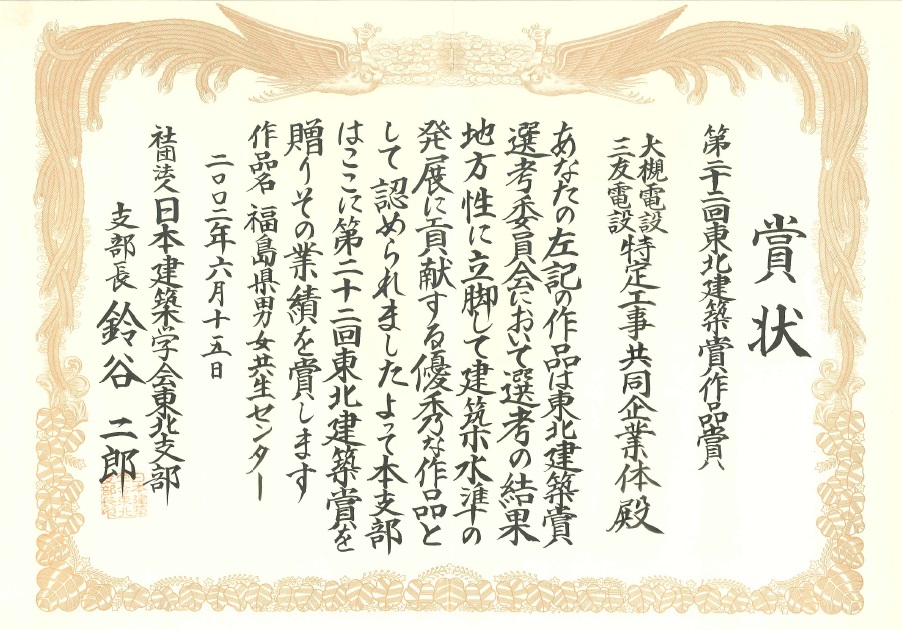 賞状
第二十二回東北建築賞作品賞
大槻電設
三友電設
特定工事共同企業体殿
あなたの左記の作品は東北建築賞
選考委員会において選考の結果
地方性に立脚して建築水準の
発展に貢献する優秀な作品と
して認められましたよって本支部
はここに第二十二回東北建築賞を
贈りその業績を賞します
作品名 福島県男女共生センター
二〇〇二年六月十五日
社団法人日本建築学会東北支部
支部長 鈴谷二郎